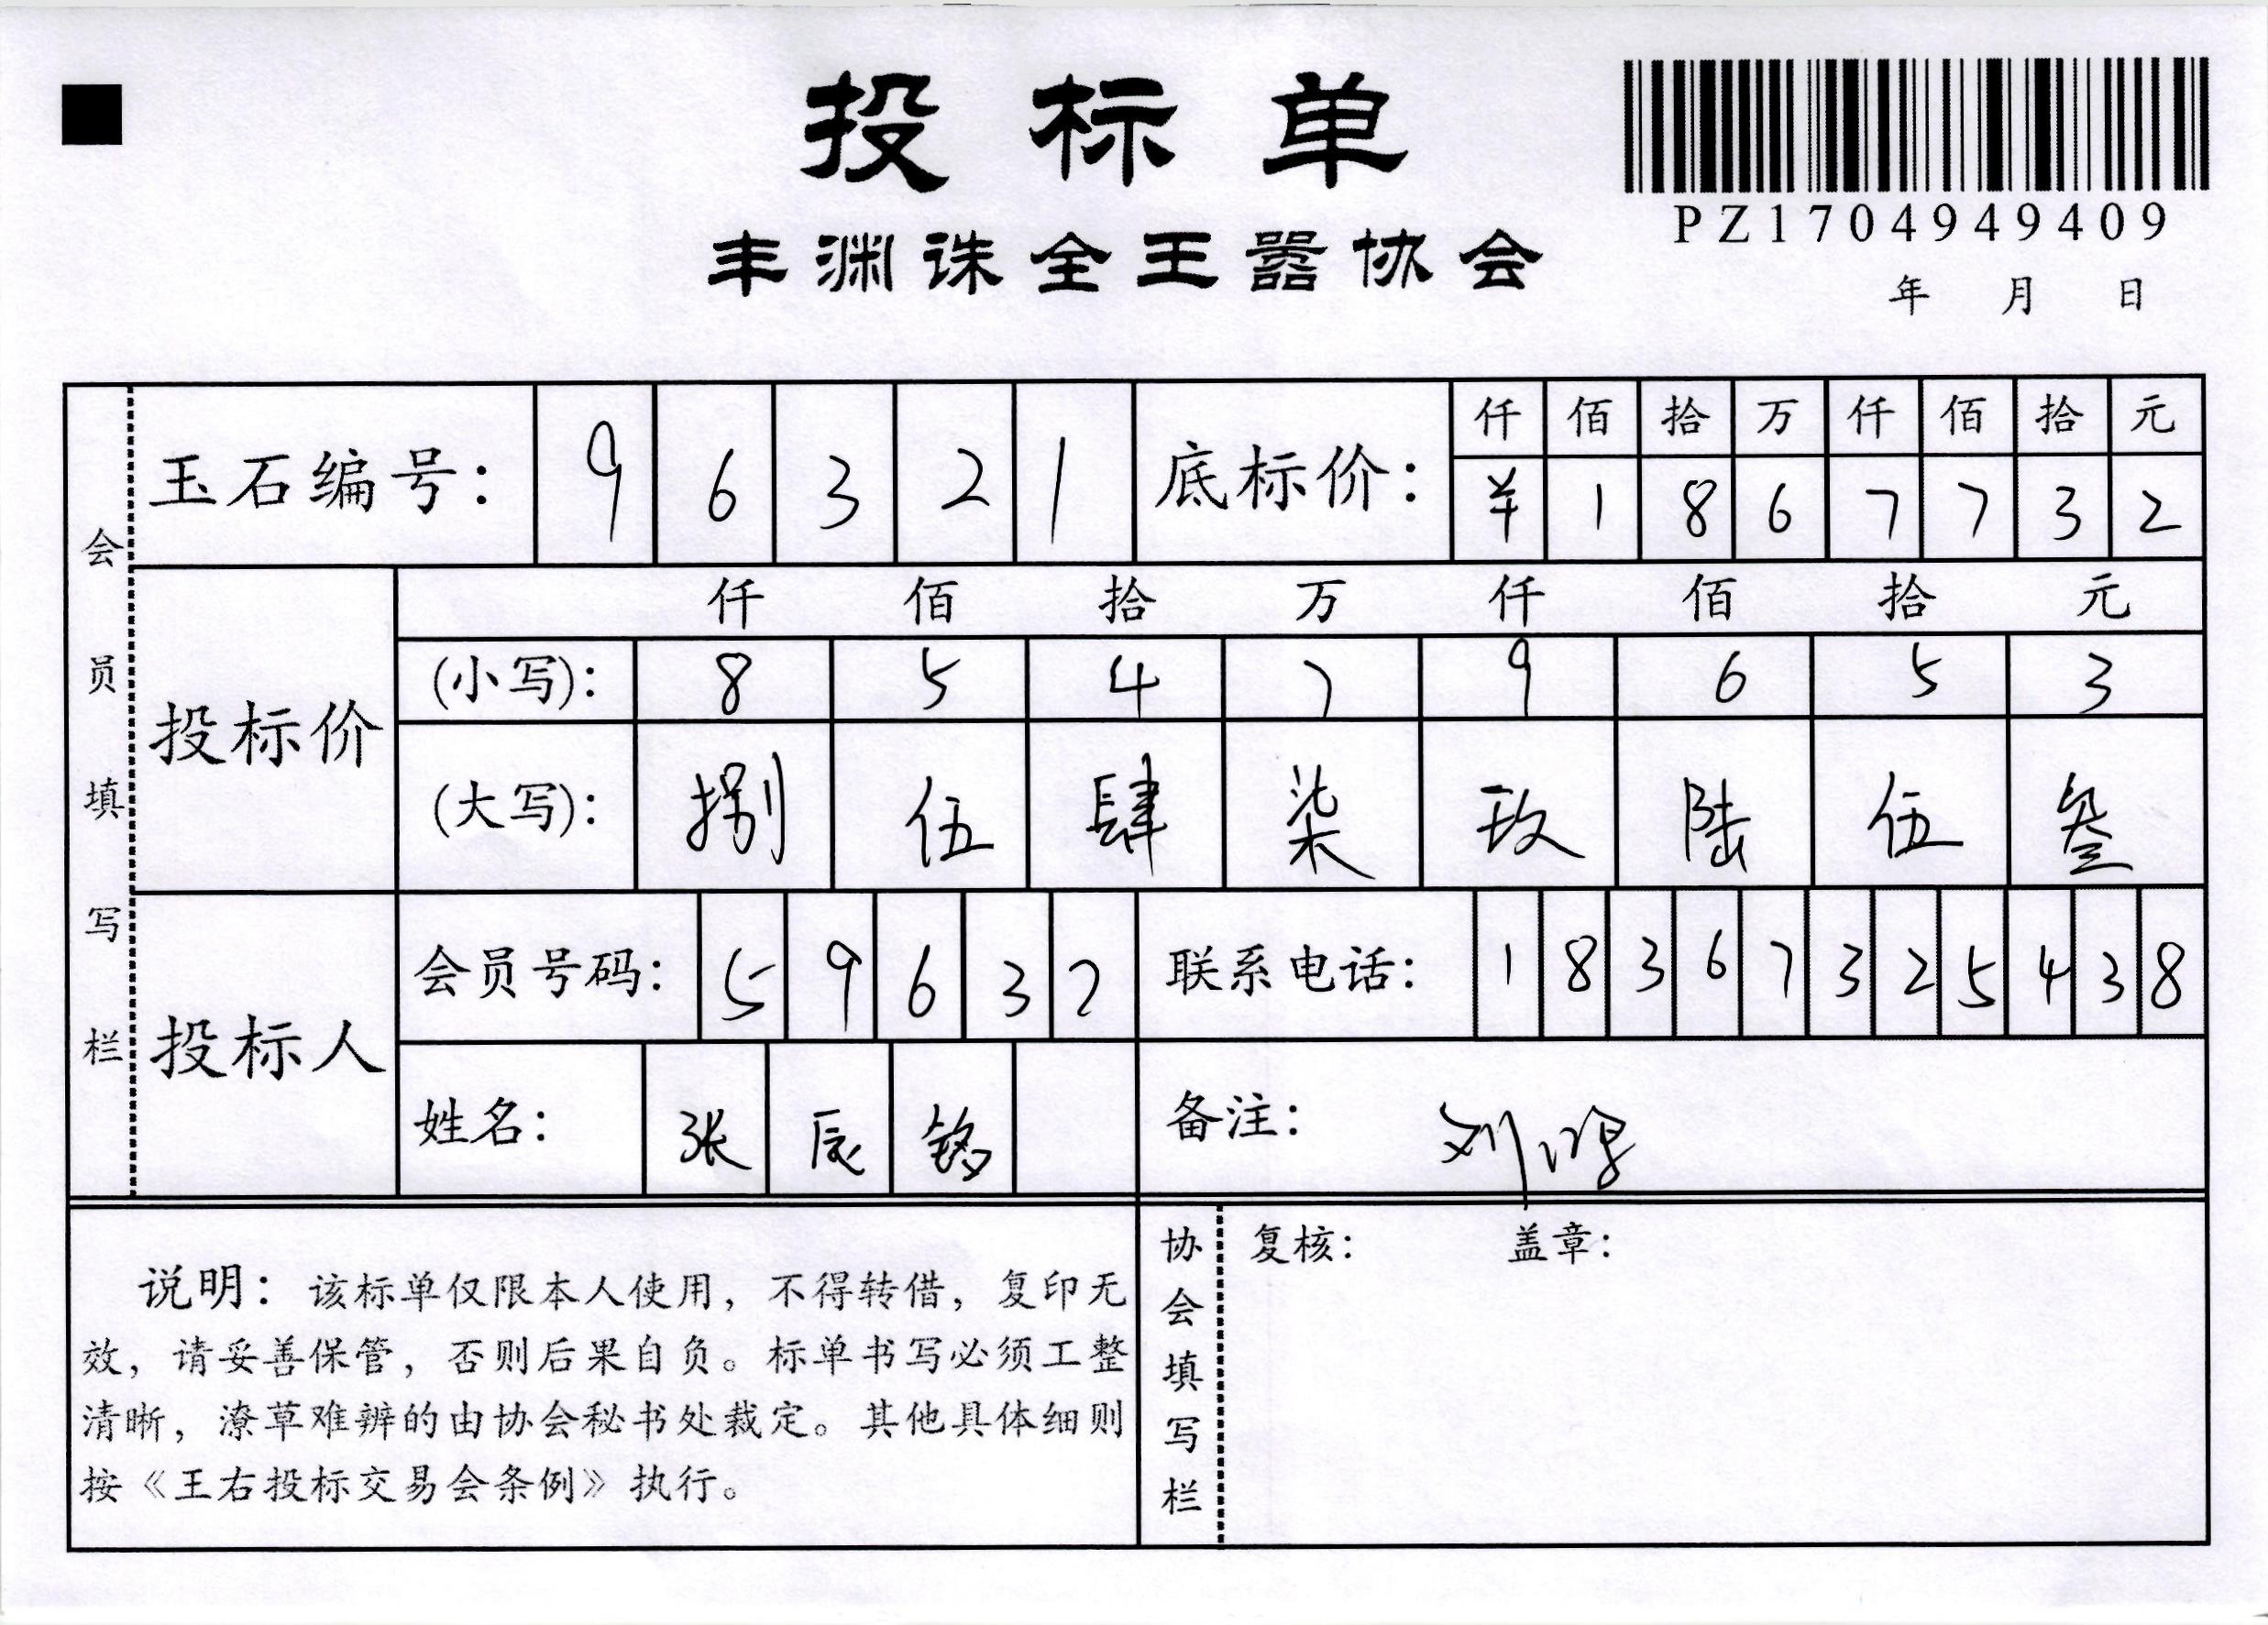 投标单
PZ1704949409
丰渊诛全王嚣协会
年 月 日
会员填写栏
玉石编号： 9 6 3 2 1
底标价：
仟 佰 拾 万 仟 佰 拾 元
¥ 1 8 6 7 7 3 2
投标价
仟 佰 拾 万 仟 佰 拾 元
(小写)： 8 5 4 7 9 6 5 3
(大写)： 捌 伍 肆 柒 玖 陆 伍 叁
投标人
会员号码： 5 9 6 3 2
联系电话： 1 8 3 6 7 3 2 5 4 3 8
姓名： 张 辰 铭
备注： 刘
说明：该标单仅限本人使用，不得转借，复印无
效，请妥善保管，否则后果自负。标单书写必须工整
清晰，潦草难辨的由协会秘书处裁定。其他具体细则
按《王右投标交易会条例》执行。
协会填写栏
复核： 盖章：